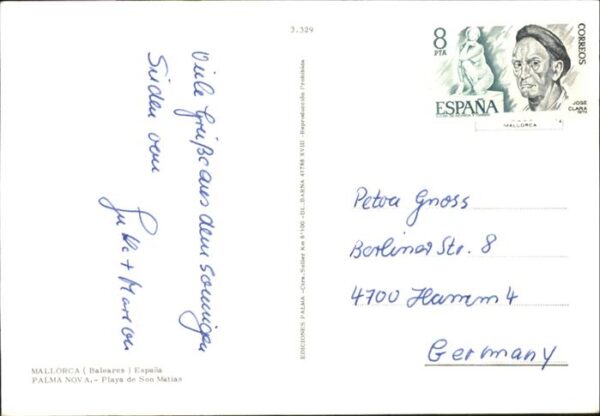 3.329
Viele Grüße aus dem sonnigen
Süden von
+ Marion
EDICIONES PALMA -Ctra. Soller Km 6'100 -DL. BARNA 41788 XVIII -Reproducción Prohibida
8
PTA
CORREOS
ESPAÑA
JOSE
CLARA
MALLORCA
Petra Gnoss
Berliner Str. 8
4700 Hamm 4
Germany
MALLORCA ( Baleares ) España
PALMA NOVA.- Playa de Son Matias